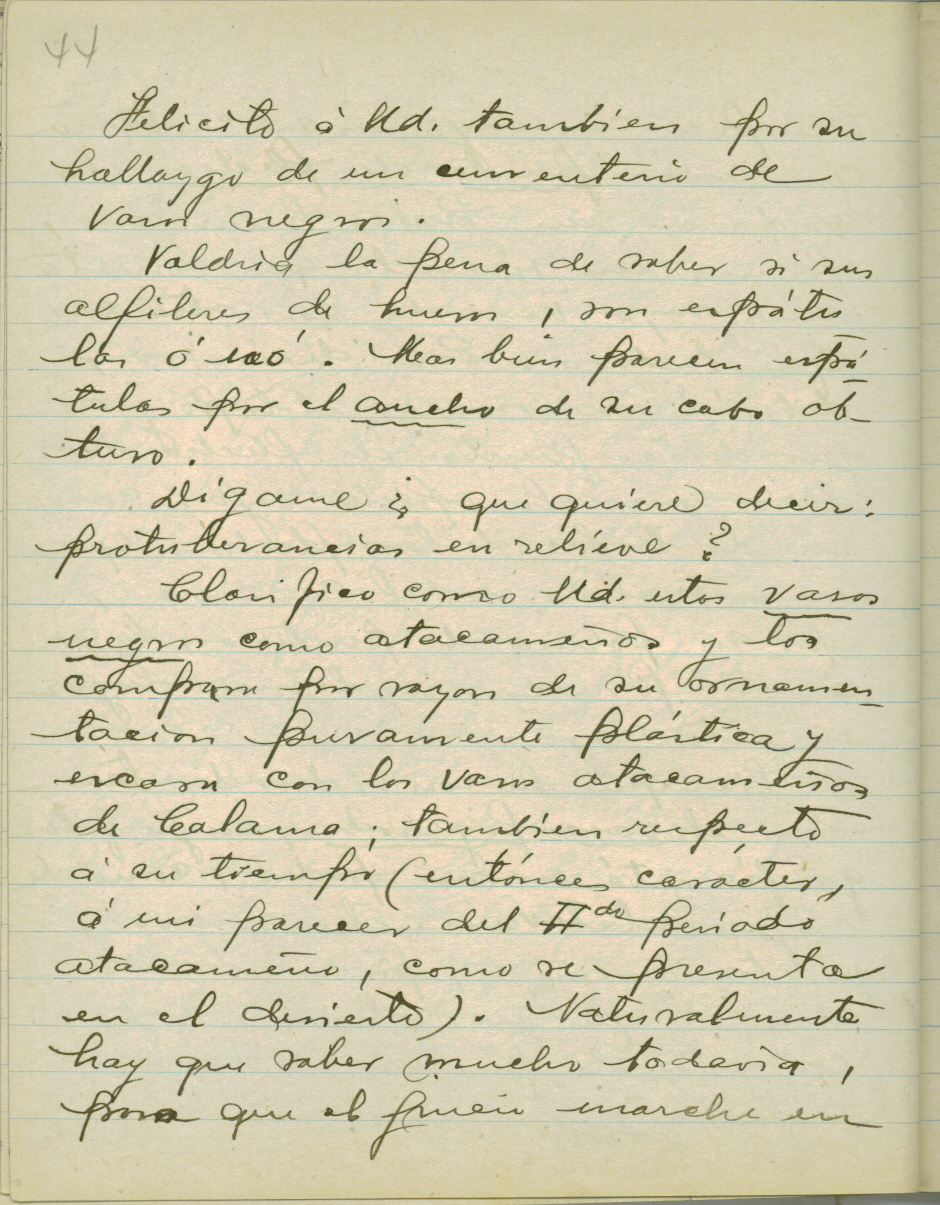 44
Felicito á Ud. tambien por su
hallazgo de un cementerio de
vasos negros.
Valdria la pena de saber si sus
alfileres de hueso, son espátu
las ó nó. Mas bien parecen espá-
tulas por el ancho de su cabo ob-
tuso.
Dígame ¿ que quiere decir:
protuberancias en relieve ?
Clasifico como Ud. estos vasos
negros como atacameños y los
comparo por razon de su ornamen-
tacion puramente plástica y
escasa con los vasos atacameños
de Calama; tambien respecto
á su tiempo (entónces carácter,
á mi parecer del IIdo periodo
atacameño, como se presenta
en el desierto). Naturalmente
hay que saber mucho todavia,
para que el juicio marche en